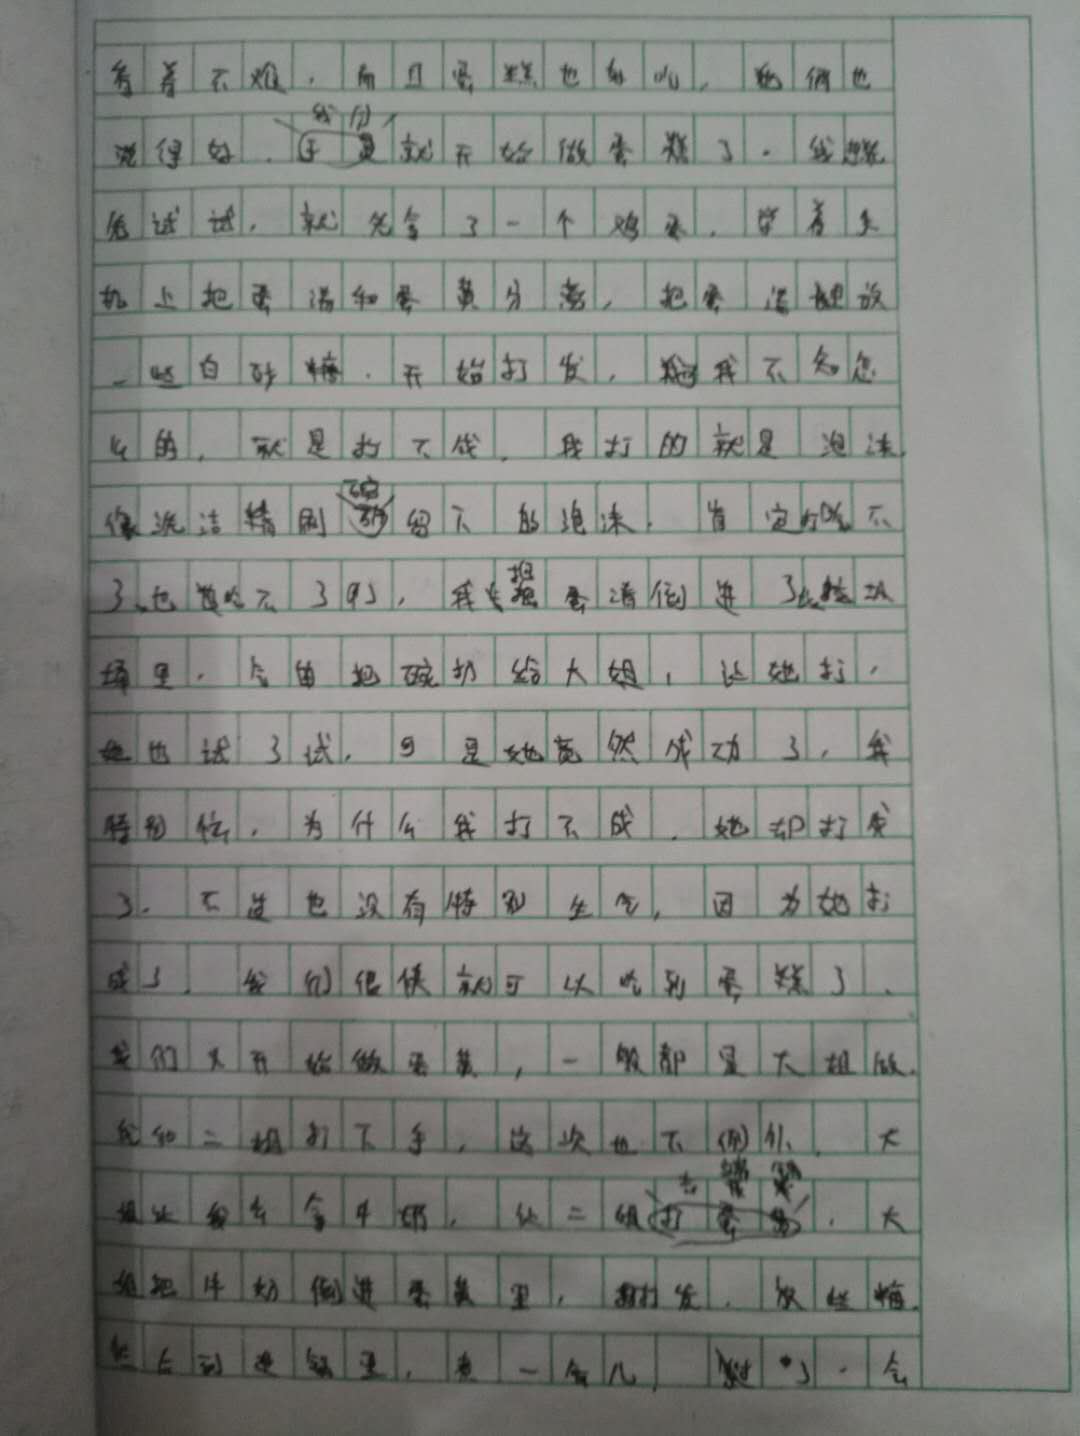 看着不难，而且蛋糕也好吃，她俩也
说得好，我们就开始做蛋糕了。我想先
试试，就先拿了一个鸡蛋，学着手
机上把蛋清和蛋黄分离，把蛋清里放
一些白砂糖，开始打发，我不知怎
么的，就是打不成，我打的就是泡沫，
像洗洁精刷碗留下的泡沫，肯定吃不
了，也吃不了的，我把蛋清倒进了垃圾
桶里，然后把碗扔给大姐，让她打，
她也试了试，可是她竟然成功了，我
特别，为什么我打不成，她却打发
了，不过也没有特别生气，因为她打
成了，我们很快就可以吃到蛋糕了，
我们又开始做蛋黄，一般都是大姐做，
我和二姐打下手，这次也不例外，大
姐让我去拿牛奶，让二姐去，大
姐把牛奶倒进蛋黄里，打发，放些糖，
然后到进锅里，煮一会儿